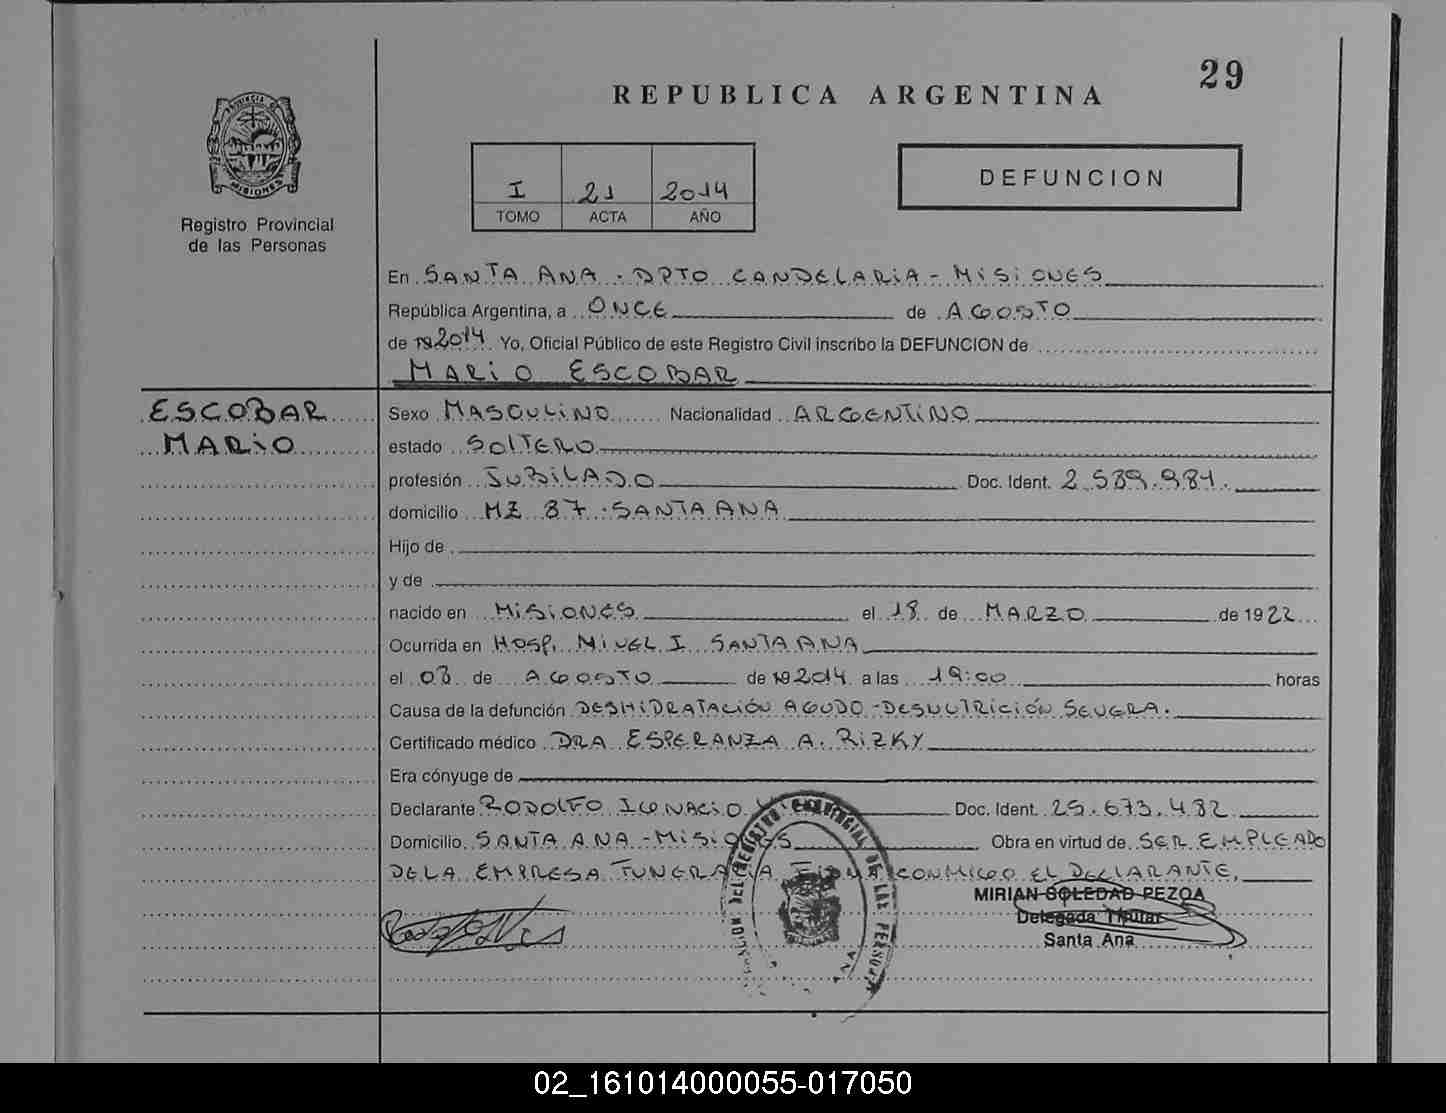 29
REPUBLICA ARGENTINA
PROVINCIA DE
MISIONES
Registro Provincial
de las Personas
I 21 2014
TOMO ACTA AÑO
DEFUNCION
En SANTA ANA - DPTO CANDELARIA - MISIONES
República Argentina, a ONCE de AGOSTO
de 19 2014 Yo, Oficial Público de este Registro Civil inscribo la DEFUNCION de
MARIO ESCOBAR
ESCOBAR
MARIO
Sexo MASCULINO Nacionalidad ARGENTINO
estado SOLTERO
profesión JUBILADO Doc. Ident. 2.589.984.
domicilio MZ 37 - SANTA ANA
Hijo de
y de
nacido en MISIONES el 18 de MARZO de 1922
Ocurrida en HOSP. NIVEL I SANTA ANA
el 03 de AGOSTO de 19 2014 a las 19:00 horas
Causa de la defunción DESHIDRATACIÓN AGUDO - DESNUTRICIÓN SEVERA.
Certificado médico DRA ESPERANZA A. RIZKY
Era cónyuge de
Declarante RODOLFO IGNACIO Doc. Ident. 25.673.432
Domicilio SANTA ANA - MISIONES Obra en virtud de SER EMPLEADO
DE LA EMPRESA FUNERARIA FIRMA CONMIGO EL DECLARANTE,
REGISTRO PROVINCIAL DE LAS PERSONAS
MIRIAN SOLEDAD PEZOA
Delegada Titular
Santa Ana
02_161014000055-017050